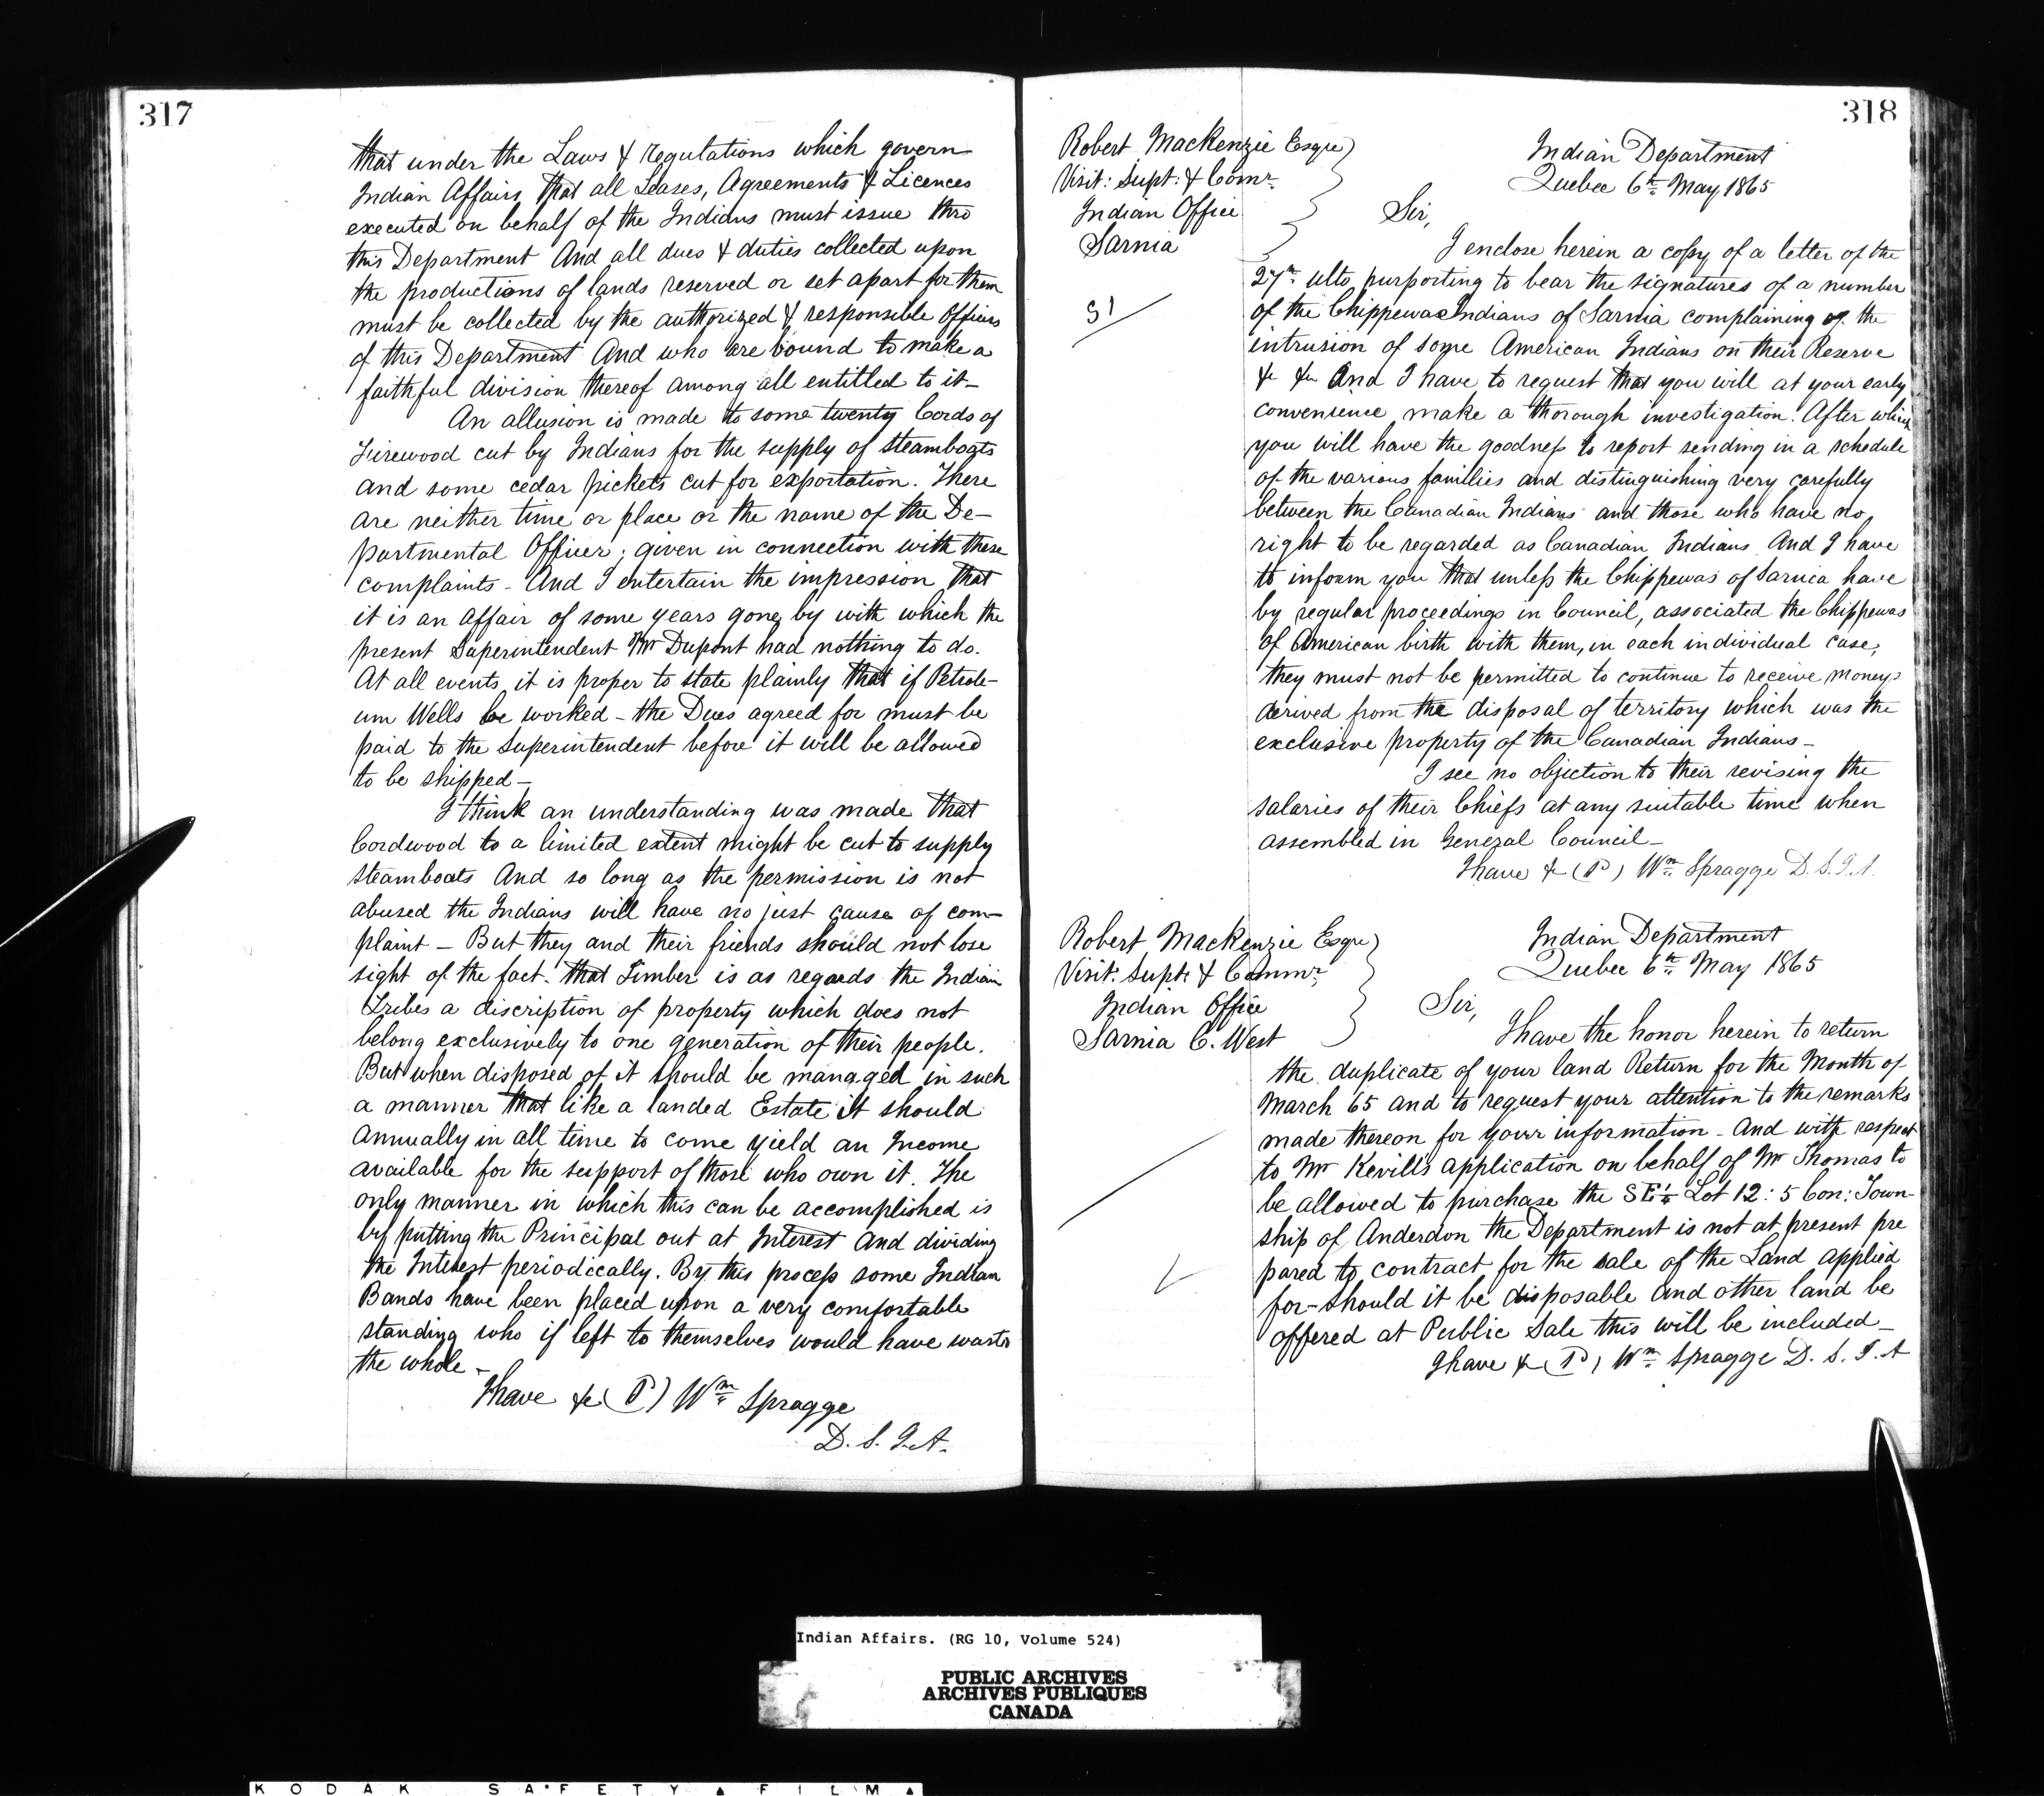 317
that under the Laws & regulations which govern
Indian Affairs that all Leases, Agreements & Licences
executed on behalf of the Indians must issue thro
this Department And all dues & duties collected upon
the productions of lands reserved or set apart for them
must be collected by the authorized & responsible Officers
of this Department And who are bound to make a
faithful division thereof among all entitled to it—
An allusion is made to some twenty Cords of
Firewood cut by Indians for the supply of Steamboats
and some cedar pickets cut for exportation. There
are neither time or place or the name of the De-
partmental Officer; given in connection with these
complaints - And I entertain the impression that
it is an affair of some years gone by with which the
present Superintendent Mr Dupont had nothing to do.
At all events it is proper to state plainly that if Petrole-
um Wells be worked - the Dues agreed for must be
paid to the Superintendent before it will be allowed
to be shipped—
I think an understanding was made that
Cordwood to a limited extent might be cut to supply
Steamboats And so long as the permission is not
abused the Indians will have no just cause of com-
plaint - But they and their friends should not lose
sight of the fact. that Timber is as regards the Indian
Tribes a discription of property which does not
belong exclusively to one generation of their people.
But when disposed of it should be managed in such
a manner that like a landed Estate it should
annually in all time to come yield an Income
available for the support of those who own it. The
only manner in which this can be accomplished is
by putting the Principal out at Interest And dividing
the Interest periodically. By this process some Indian
Bands have been placed upon a very comfortable
standing who if left to themselves would have wasted
the whole -
I have &c (P) Wm Spragge
D. S. I. A.
318
Robert Mackenzie Esqre
Visit: Supt: & Comr
Indian Office
Sarnia
Indian Department
Quebec 6th May 1865
Sir,
I enclose herein a copy of a letter of the
27th ulto, purporting to bear the signatures of a number
of the Chippewas Indians of Sarnia complaining of the
intrusion of some American Indians on their Reserve
&c &c And I have to request that you will at your early
convenience make a thorough investigation. After which
you will have the goodness to report sending in a schedule
of the various families and distinguishing very carefully
between the Canadian Indians and those who have no
right to be regarded as Canadian Indians And I have
to inform you that unless the Chippewas of Sarnia have
by regular proceedings in Council, associated the Chippewas
of American birth with them, in each individual case,
they must not be permitted to continue to receive moneys
derived from the disposal of territory which was the
exclusive property of the Canadian Indians—
I see no objection to their revising the
salaries of their Chiefs at any suitable time when
assembled in General Council—
I have & (P) Wm Spragge D. S. I. A.
Robert Mackenzie Esqre
Visit: Supt: & Commr
Indian Office
Sarnia C. West
Indian Department
Quebec 6th May 1865
Sir,
I have the honor herein to return
the duplicate of your land Return for the Month of
March 65 and to request your attention to the remarks
made thereon for your information - And with respect
to Mr Kevill's application on behalf of Mr Thomas to
be allowed to purchase the SE¼ Lot 12: 5 Con: Town-
ship of Anderdon the Department is not at present pre
pared to contract for the sale of the Land applied
for - should it be disposable and other land be
offered at Public Sale this will be included—
I have & (P) Wm Spragge D. S. I. A
Indian Affairs. (RG 10, Volume 524)
PUBLIC ARCHIVES
ARCHIVES PUBLIQUES
CANADA
KODAK SAFETY FILM